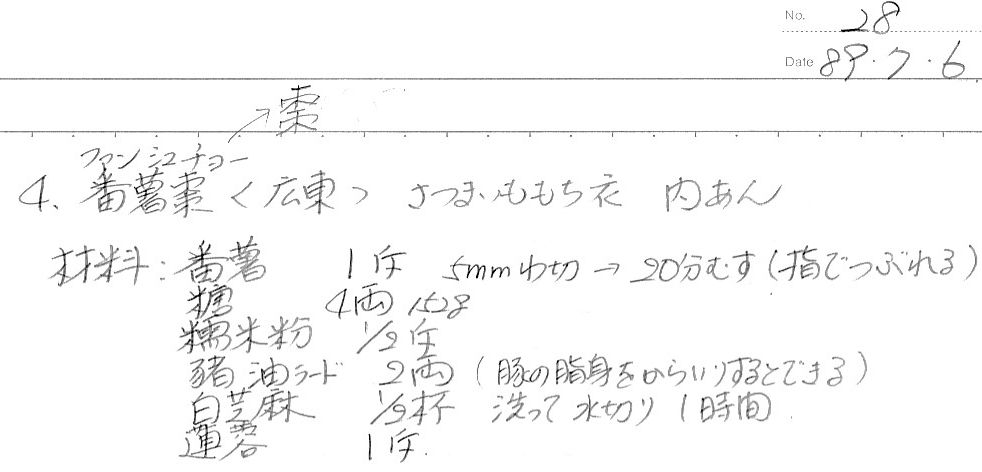 No. 28
Date 89・7・6
→棗
ファンシューチョー
4、番薯棗〈広東〉 さつまいももち衣 内あん
材料: 番薯 1斤 5mmわ切→20分むす(指でつぶれる)
糖 4両 152g
糯米粉 1/2斤
豬油ラード 2両 (豚の脂身をからいりするとできる)
白芝麻 1/2杯 洗って水切り1時間
蓮蓉 1斤.